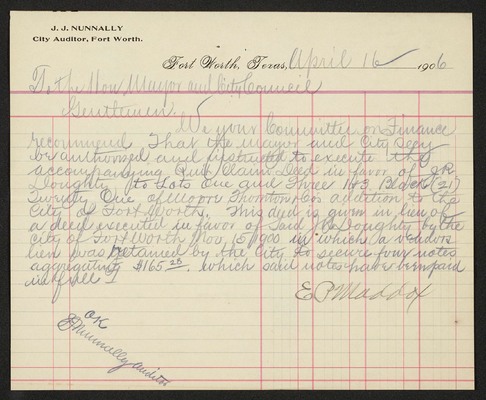 J. J. NUNNALLY
City Auditor, Fort Worth.
Fort Worth, Texas, April 16 1906
To the Hon Mayor and City Council
Gentlemen.
We your Committee on Finance
recommend That the Mayor and City Secy
be authorized and instructed to execute the
accompanying Quit Claim Deed in favor of J R
Doughty to Lots One and Three 1 & 3 Block (21)
Twenty One of Moore Thornton & Cos addition to the
City of Fort Worth. This deed is given in lieu of
a deed executed in favor of Said J R Doughty by the
City of Fort Worth Nov 15 1900 in which a vendors
lien was retained by the City to secure four notes
aggregating $165.28, which said notes have been paid
in full
E P Maddox
OK
JJ Nunnally Auditor